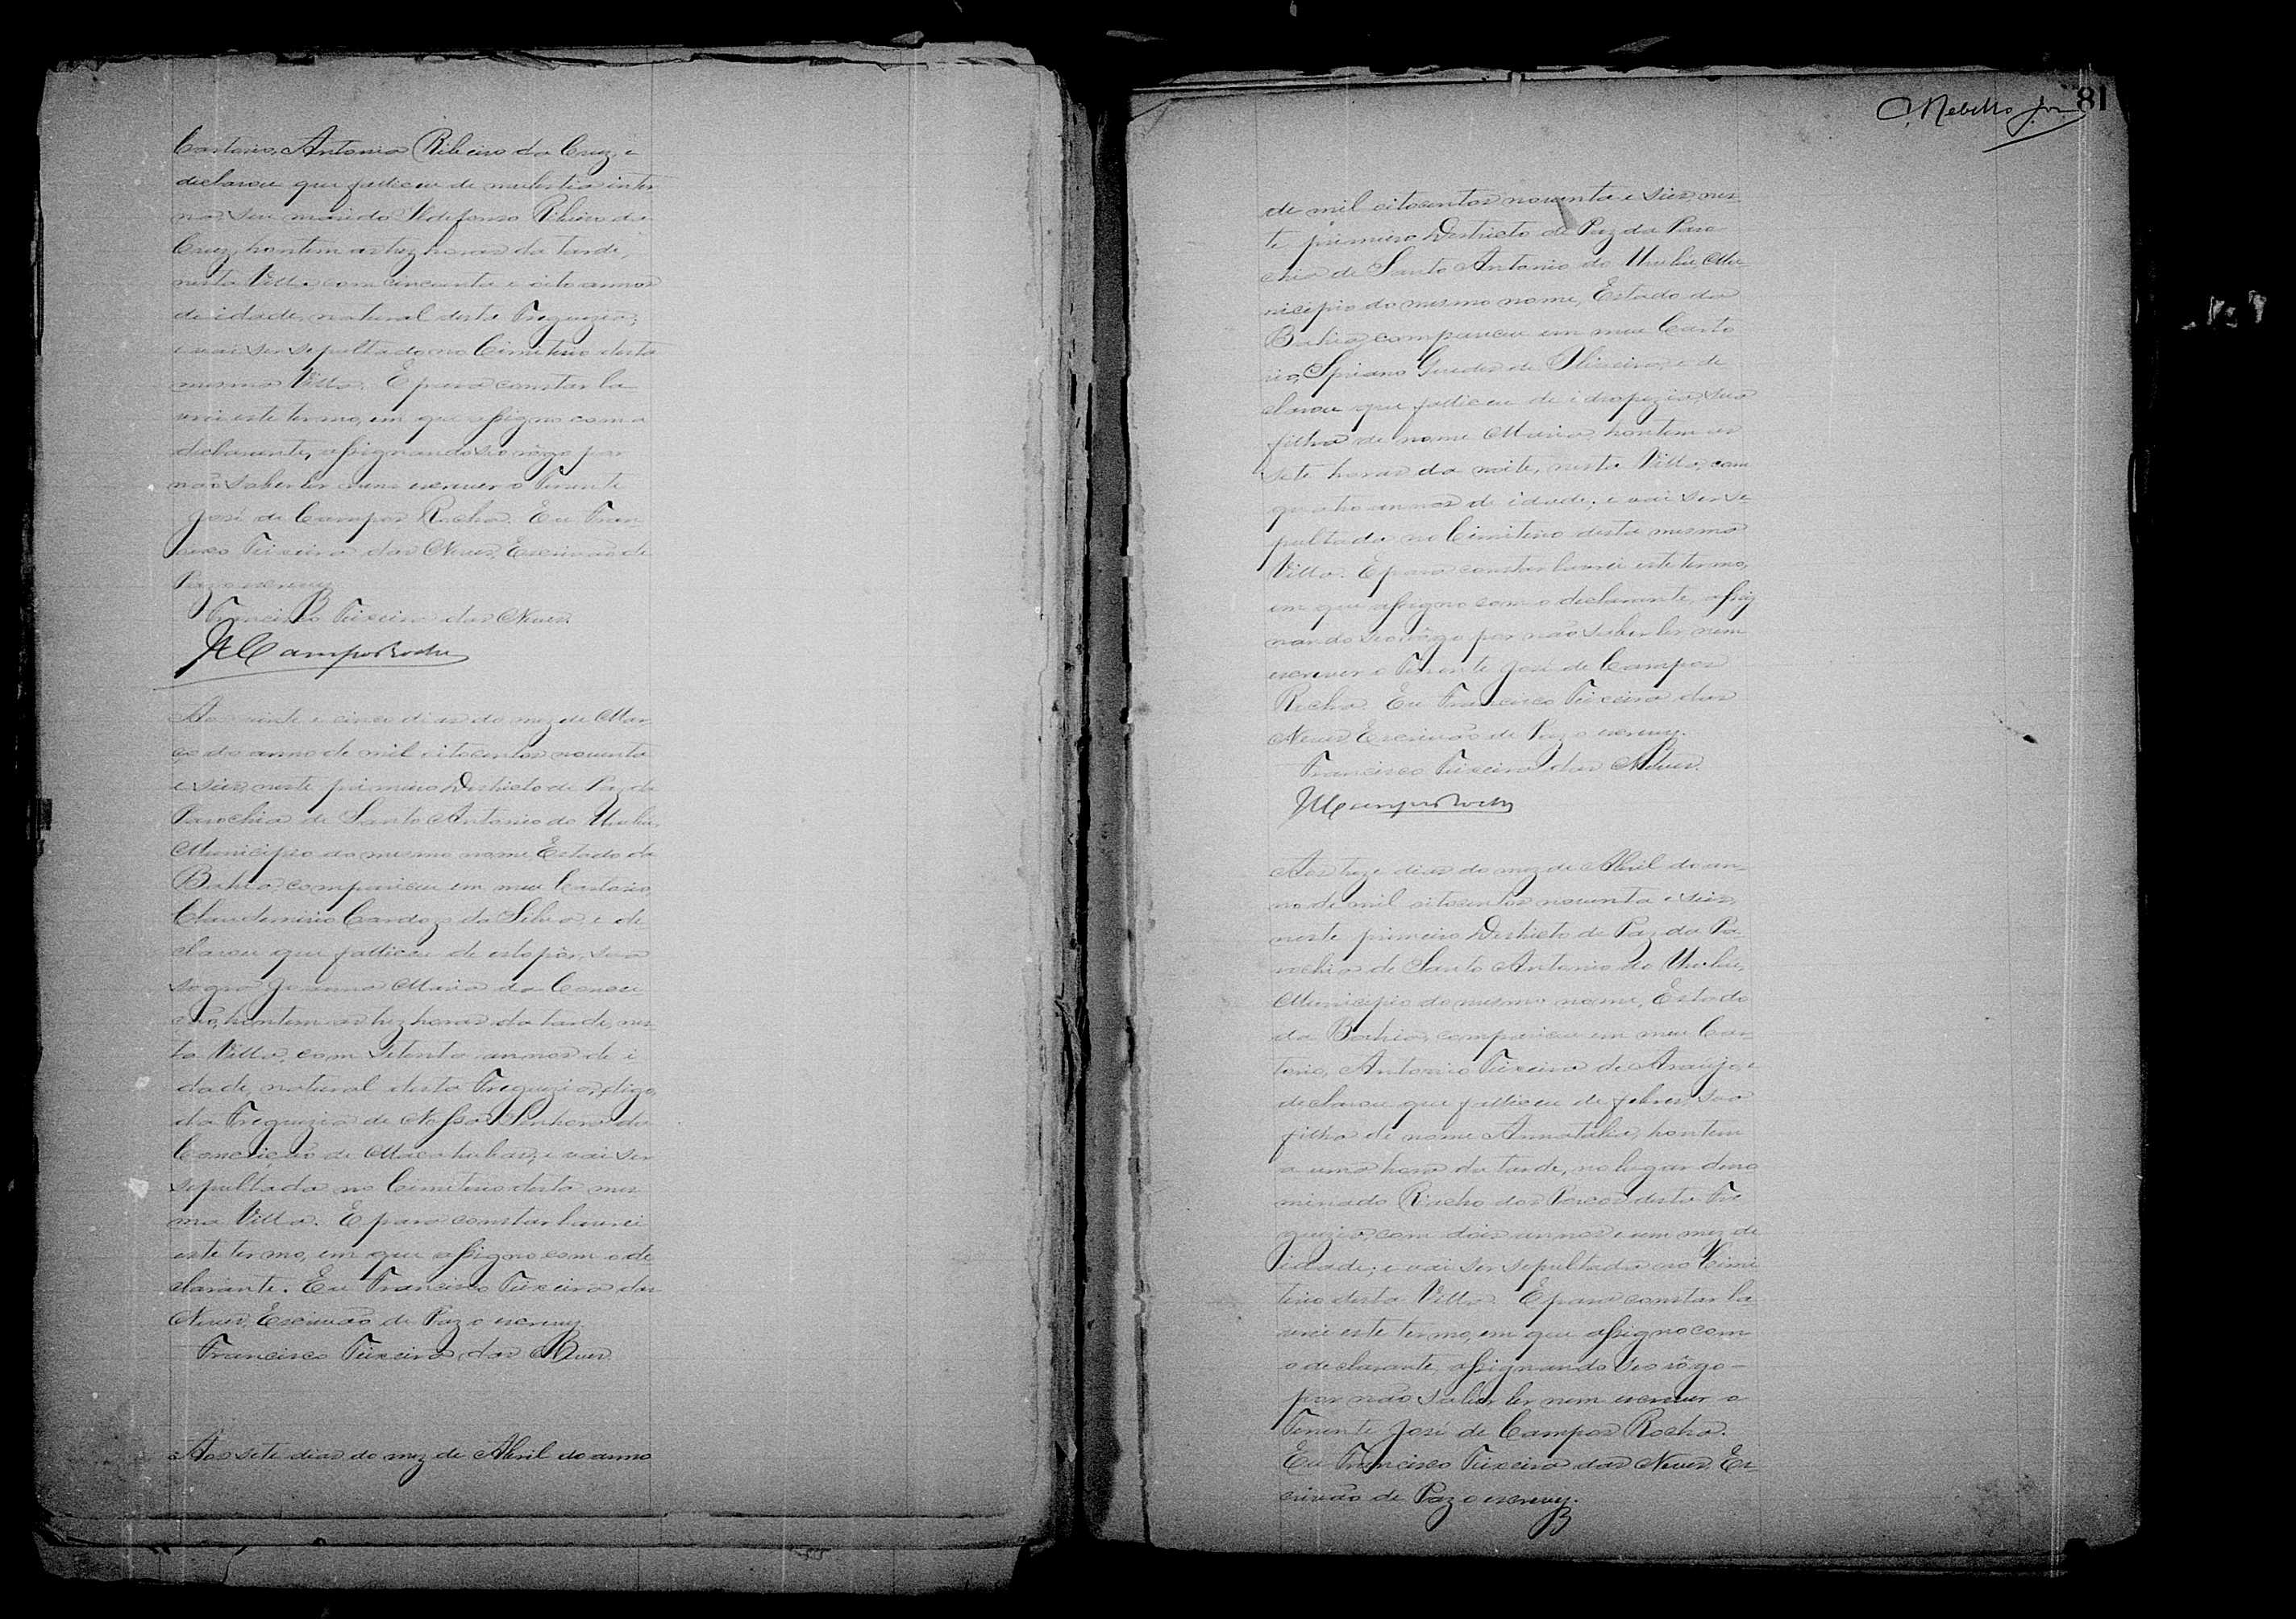 Cartorio, Antonia Ribeiro da Cruz, e
declarou que falleceu de molestia inter
na, seu marido Ildefonso Ribeiro da
Cruz, hontem as trez horas da tarde,
nesta Villa, com cincoenta e oito annos
de idade, natural desta Freguezia;
e vai ser sepultado no Cimiterio desta
mesma Villa. E para constar la
vrei este termo, em que assigno com a
declarante, assignando seo rôgo por
não saber ler nem escrever o Tenente
José de Campos Rocha. Eu Fran
cisco Teixeira das Neves, Escrivão de
Paz o escrevy.
Francisco Teixeira das Neves.
JCamposRocha
Aos vinte e cinco dias do mez de Mar
ço do anno de mil oitocentos noventa
e seis, neste primeiro Destricto de Paz da
Parochia de Santo Antonio do Urubú,
Municipio do mesmo nome, Estado da
Bahia, compareceu em meu Cartorio,
Claudemiro Cardozo da Silva, e de
clarou que falleceu de estopôr, sua
sogra Joanna Maria da Concei
ção, hontem as trez horas da tarde, nes
ta Villa, com setenta annos de i
dade, natural desta Freguezia, digo,
da Freguezia de Nossa Senhora da
Conceição de Macahubas; e vai ser
sepultada no Cimiterio desta mes
ma Villa. E para constar lavrei
este termo, em que assigno com o de
clarante. Eu Francisco Teixeira das
Neves, Escrivão de Paz o escrevy.
Francisco Teixeira das Neves.
Aos sete dias do mez de Abril do anno
81
Rebello
de mil oitocentos noventa e seis, nes
te primeiro Destricto de Paz da Paro
chia de Santo Antonio do Urubú, Mu
nicipio do mesmo nome, Estado da
Bahia, compareceu em meu Carto
rio, Guedes de Oliveira, e de
clarou que falleceu de idropezia, sua
filha de nome Maria, hontem as
sete horas da noite, nesta Villa, com
quatro annos de idade; e vai ser se
pultada no Cimiterio desta mesma
Villa. E para constar lavrei este termo,
em que assigno com o declarante, assig
nando seo rôgo por não saber ler nem
escrever o Tenente José de Campos
Rocha. Eu Francisco Teixeira das
Neves Escrivão de Paz o escrevy.
Francisco Teixeira das Neves.
JCamposRocha
Aos treze dias do mez de Abril do an-
no de mil oitocentos noventa e seis,
neste primeiro Destricto de Paz da Pa
rochia de Santo Antonio do Urubú,
Municipio do mesmo nome, Estado
da Bahia, compareceu em meu Car-
torio, Antonio Teixeira de Araújo, e
declarou que falleceu de febres, sua
filha de nome Annatalia, hontem
a uma hora da tarde, no lugar deno
minado Riacho dos Porcos desta Fre
guezia, com dois annos e um mez de
idade; e vai ser sepultada no Cimi
terio desta Villa. E para constar la
vrei este termo, em que assigno com
o declarante, assignando seo rôgo-
por não saber ler nem escrever o
Tenente José de Campos Rocha.
Eu Francisco Teixeira das Neves, Es-
crivão de Paz o escrevy.